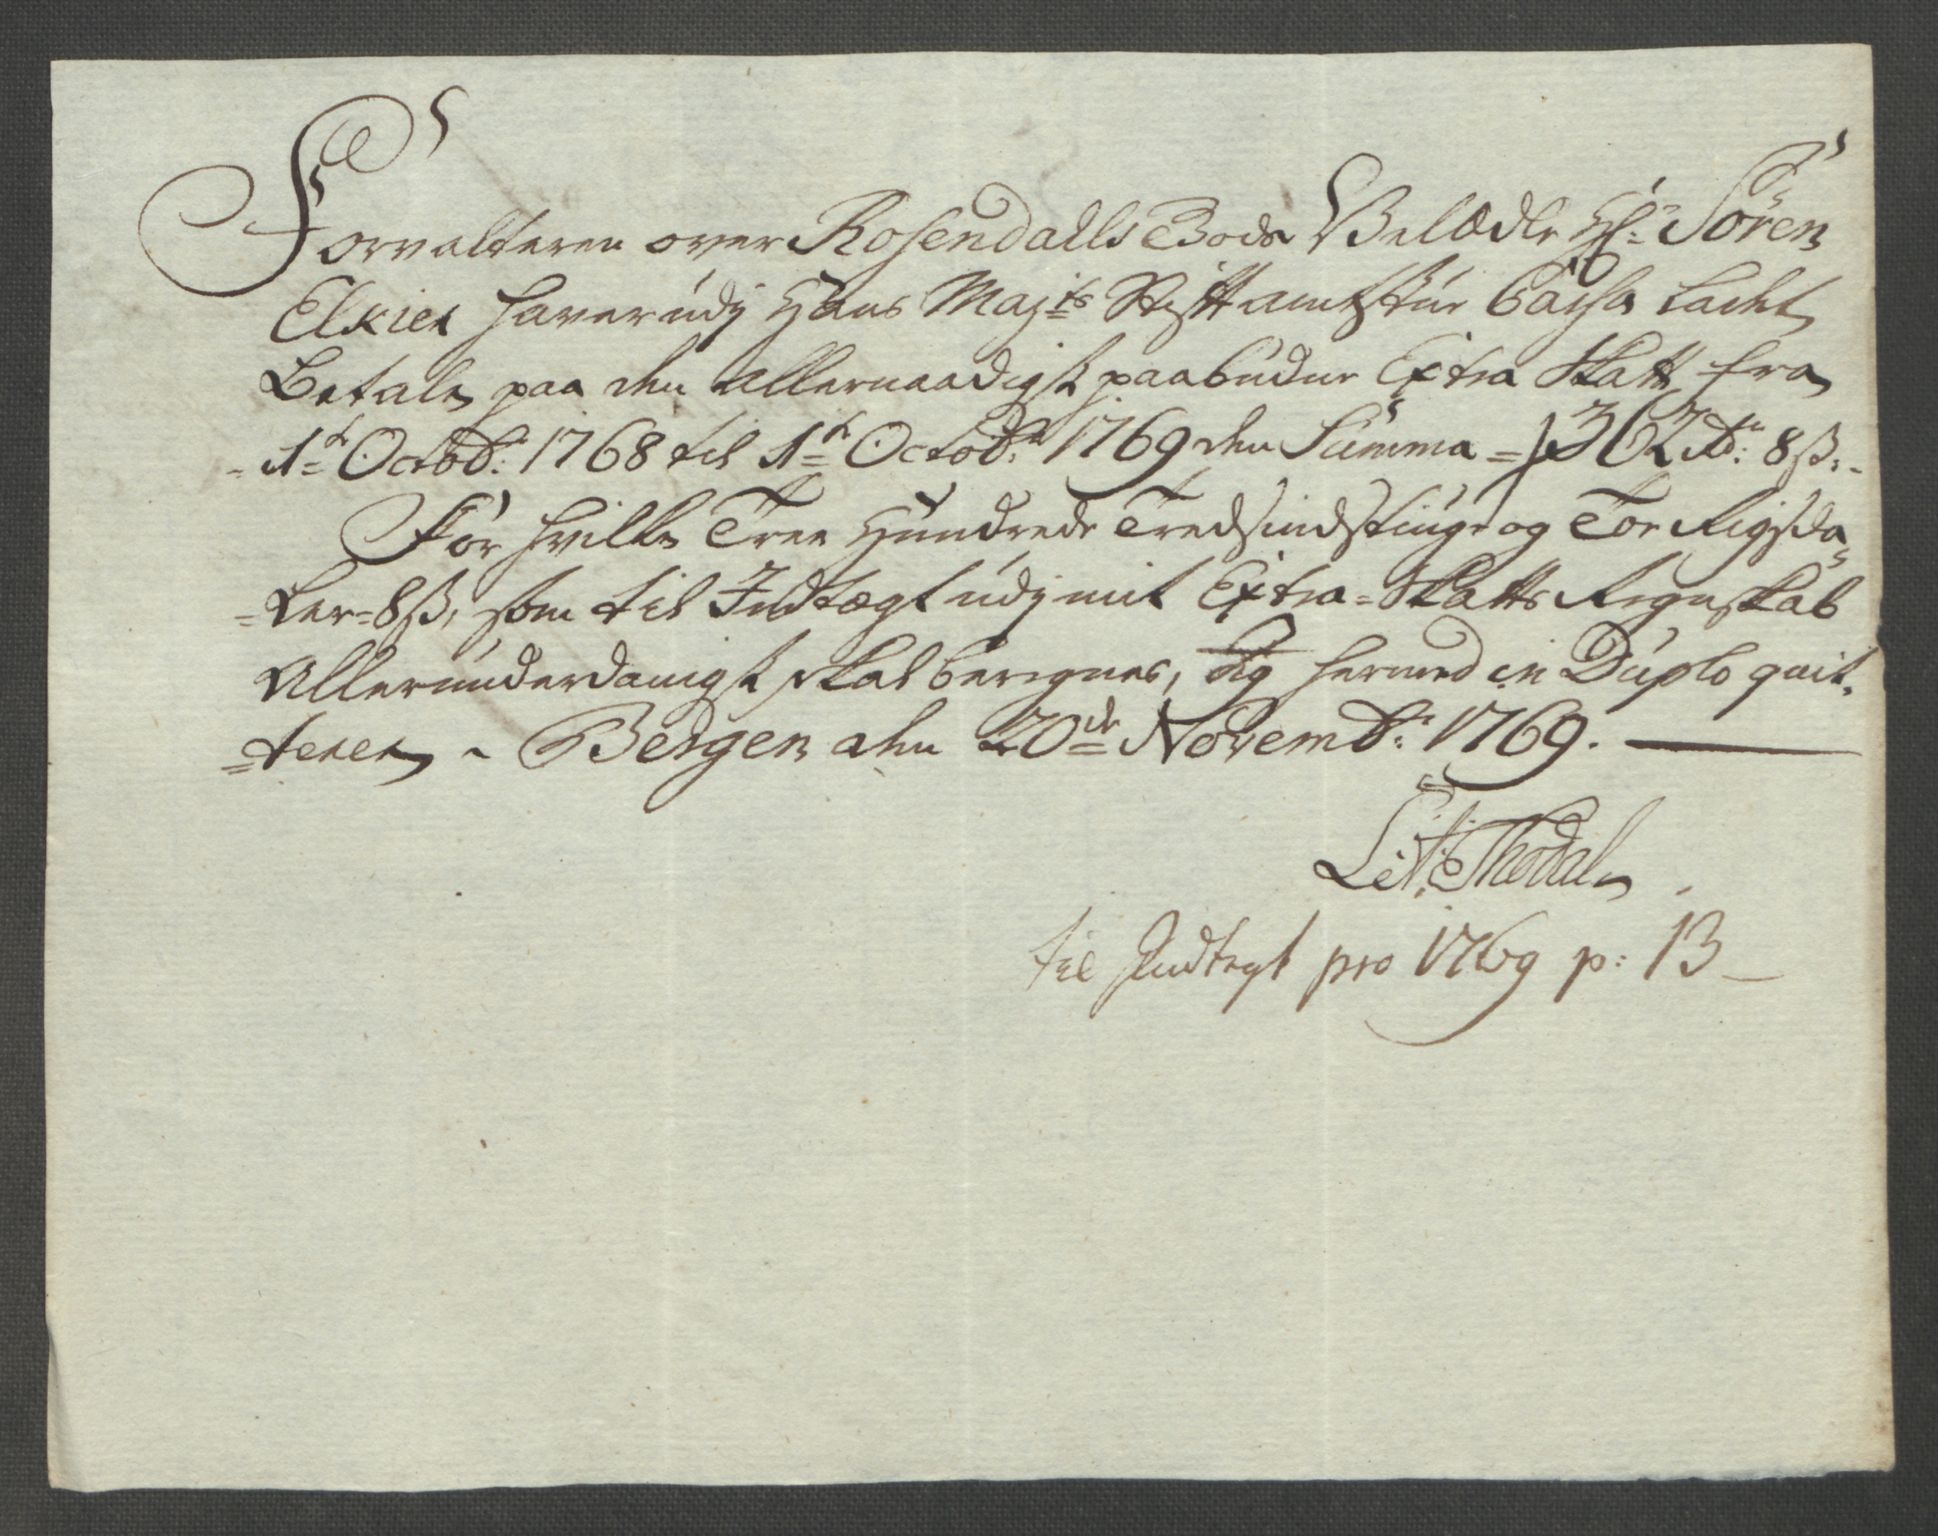 Forvalteren over Rosendalls Gods Velædle Hr: Sören
Elkier haver udj Hans Majts Stifft amtstue Cassa ladet
Betale paa den allernaadigst paabudne Extra Skatt fra
1te Octobr: 1768 til 1te Octobr: 1769 den Summa = 362 Rdr: 8 ß:
For hvilke Tree Hundrede Tredsindstiuge og Toe Rigsda=
=ler=8ß, som til Indtægt udj mit Extra=Skatts Regnskab
Allerunderdanigst skal beregnes, hermed in Duplo quit=
=teres, Bergen den 20de Novembr: 1769.
Thodal
til Indtegt pro 1769 p: 13